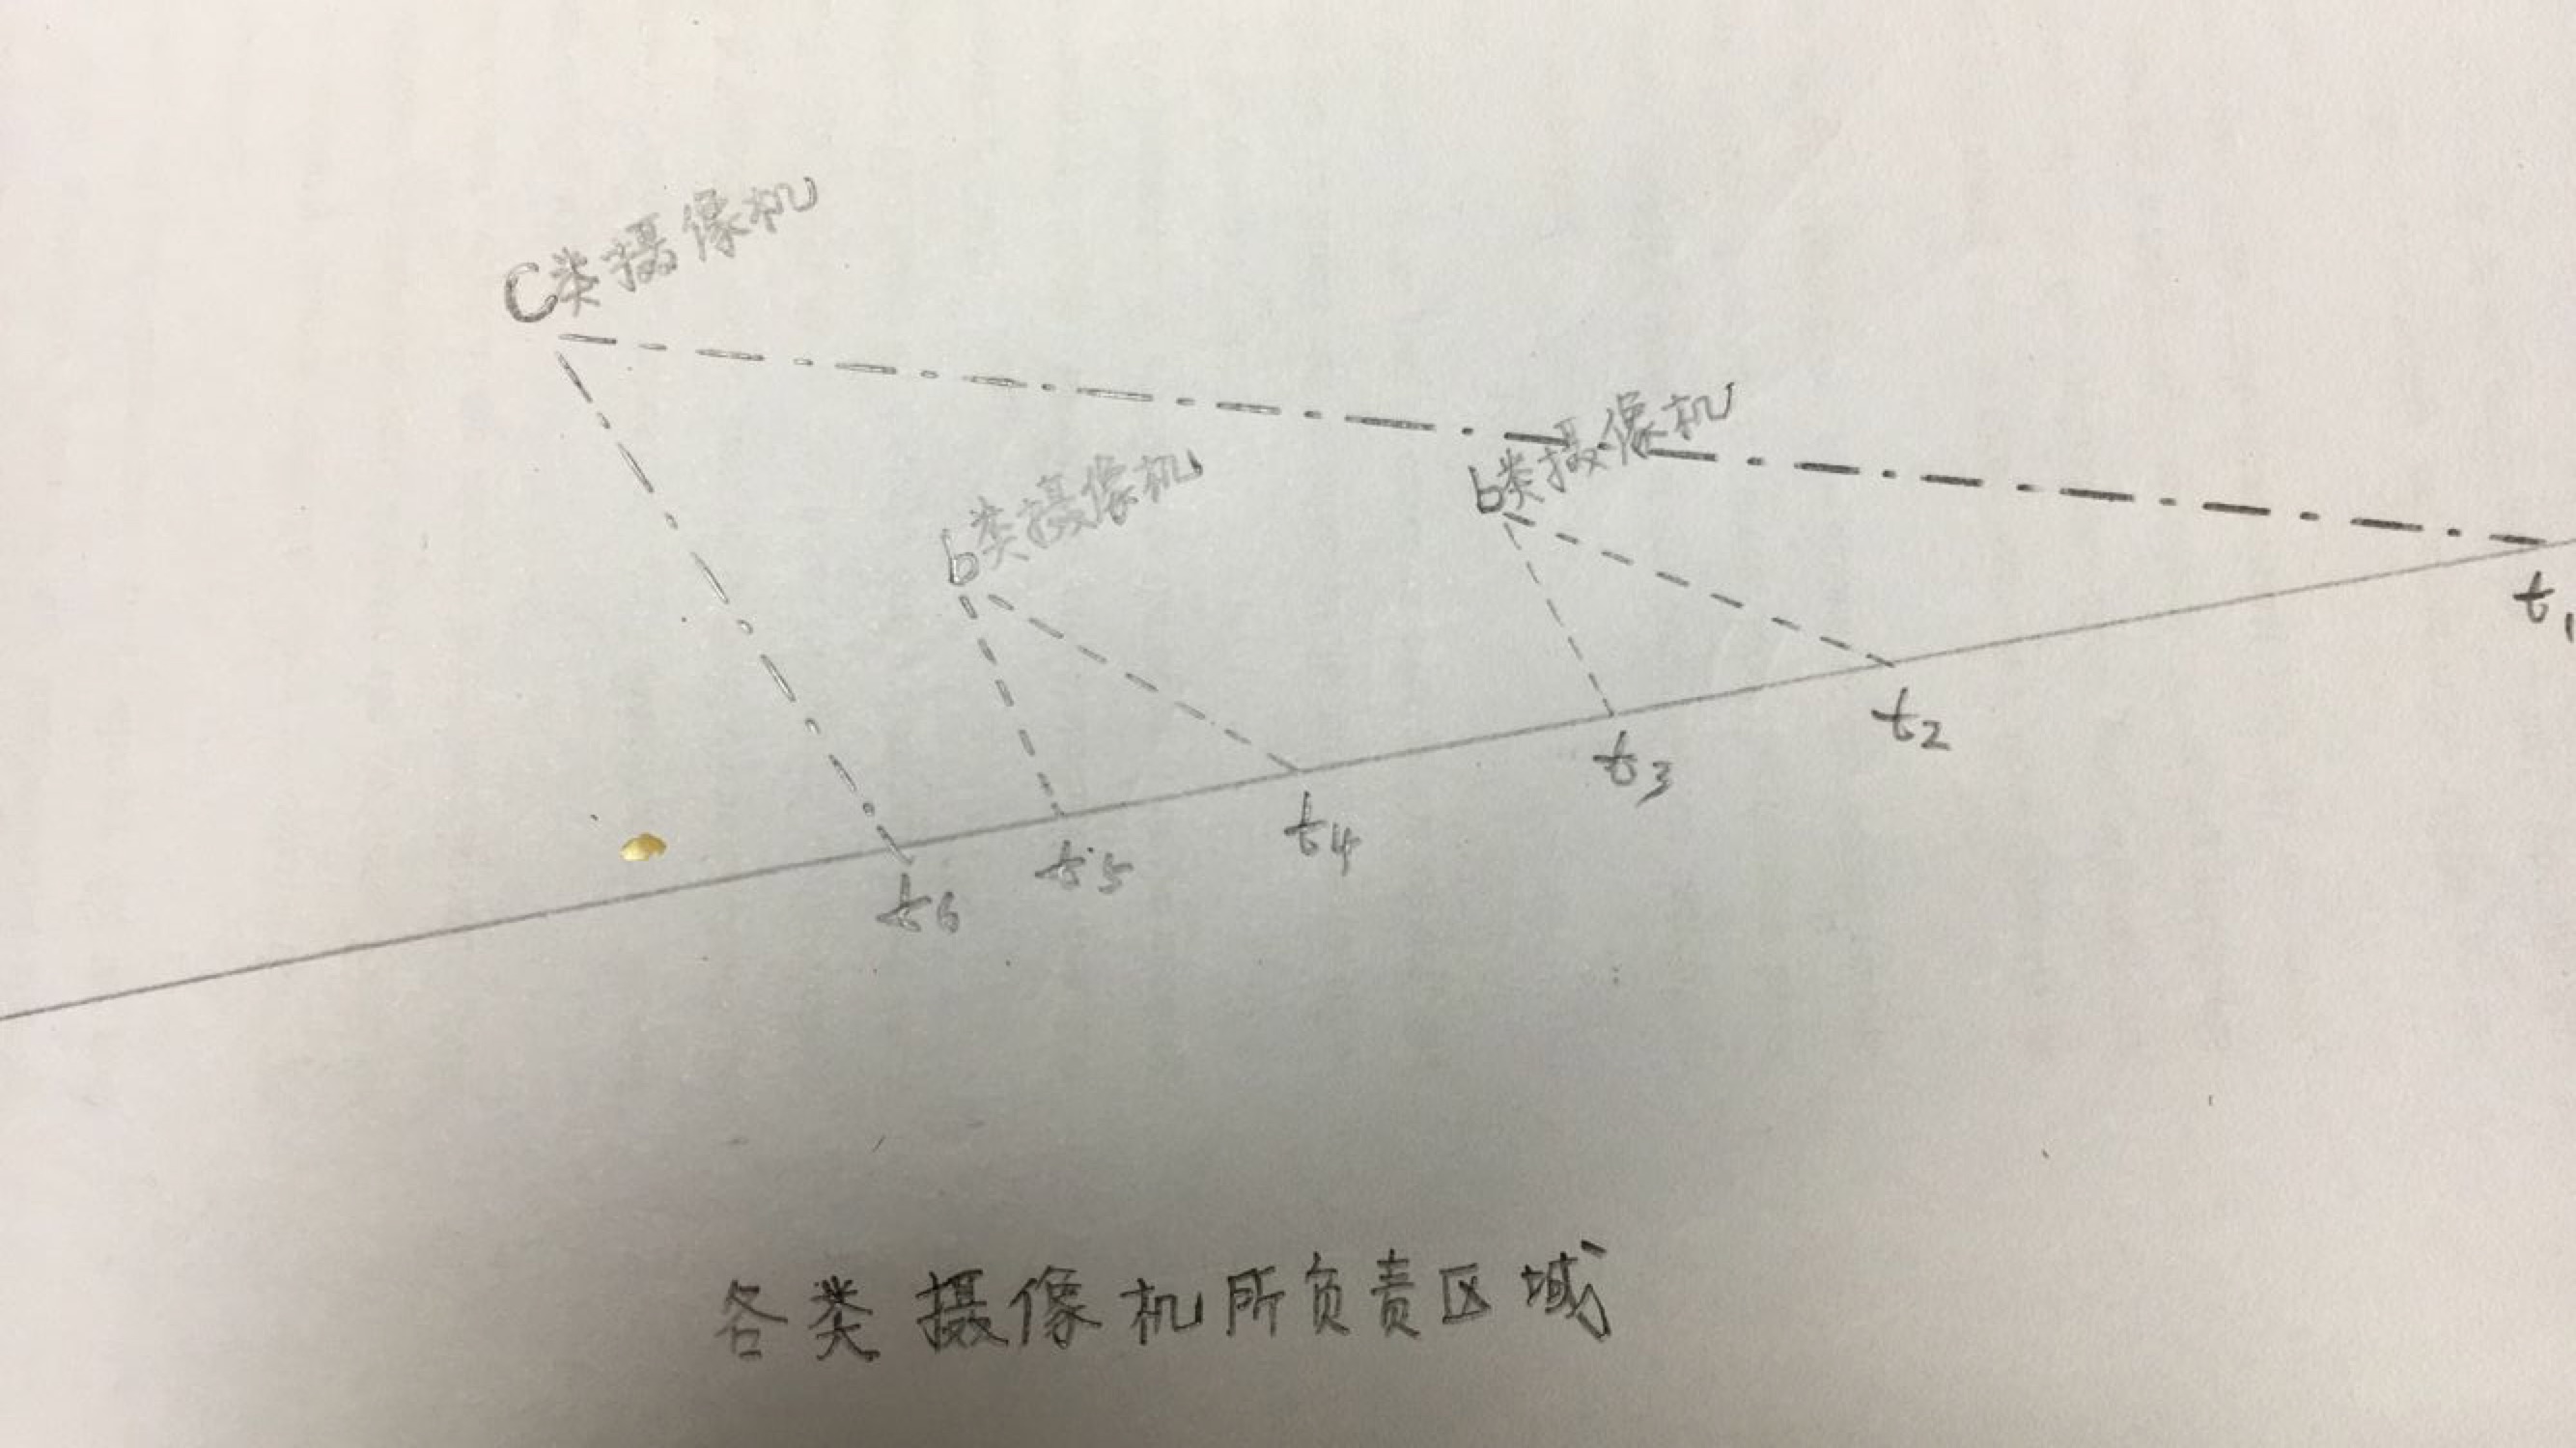 C类摄像机
b类摄像机
b类摄像机
t1
t2
t3
t4
t5
t6
各类摄像机所负责区域